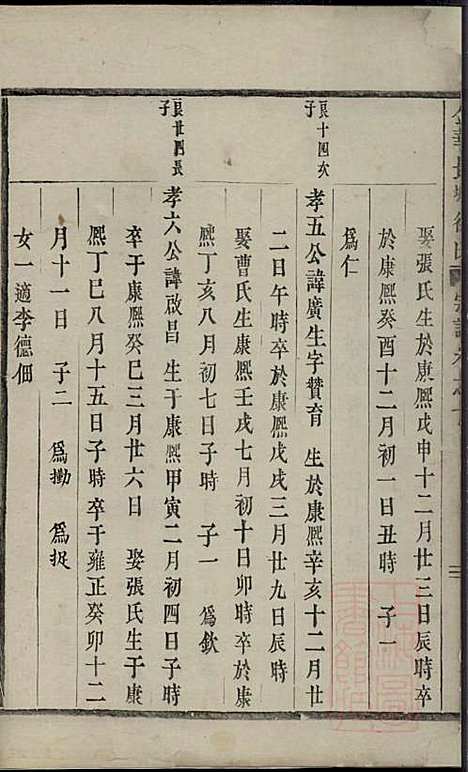 娶張氏生於康熙戊申十二月廿三日辰時卒
於康熙癸酉十二月初一日丑時 子一
為仁
良十四次子
孝五公諱廣生字贊育 生於康熙辛亥十二月廿
二日午時卒於康熙戊戌三月廿九日辰時
娶曹氏生康熙壬戌七月初十日卯時卒於康
熙丁亥八月初七日子時 子一 為欽
良廿四長子
孝六公諱啟昌 生于康熙甲寅二月初四日子時
卒于康熙癸巳三月廿六日 娶張氏生于康
熙丁巳八月十五日子時卒于雍正癸卯十二
月十一日 子二 為勷 為捉
女一適李德佃